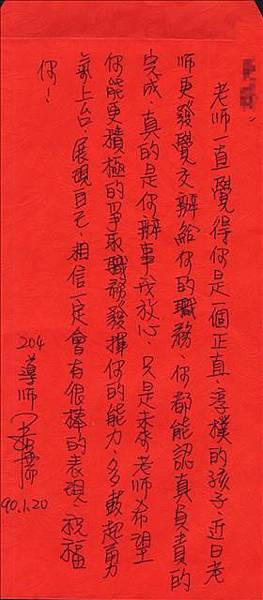 老師一直覺得你是一個正直、淳樸的孩子，近日老
師更發覺交辦給你的職務，你都能認真負責的
完成，真的是你辦事我放心，只是未來老師希望
你能更積極的爭取職務發揮你的能力，多鼓起勇
氣上台，展現自己，相信一定會有很棒的表現，祝福
你！
204
導師
90.1.20